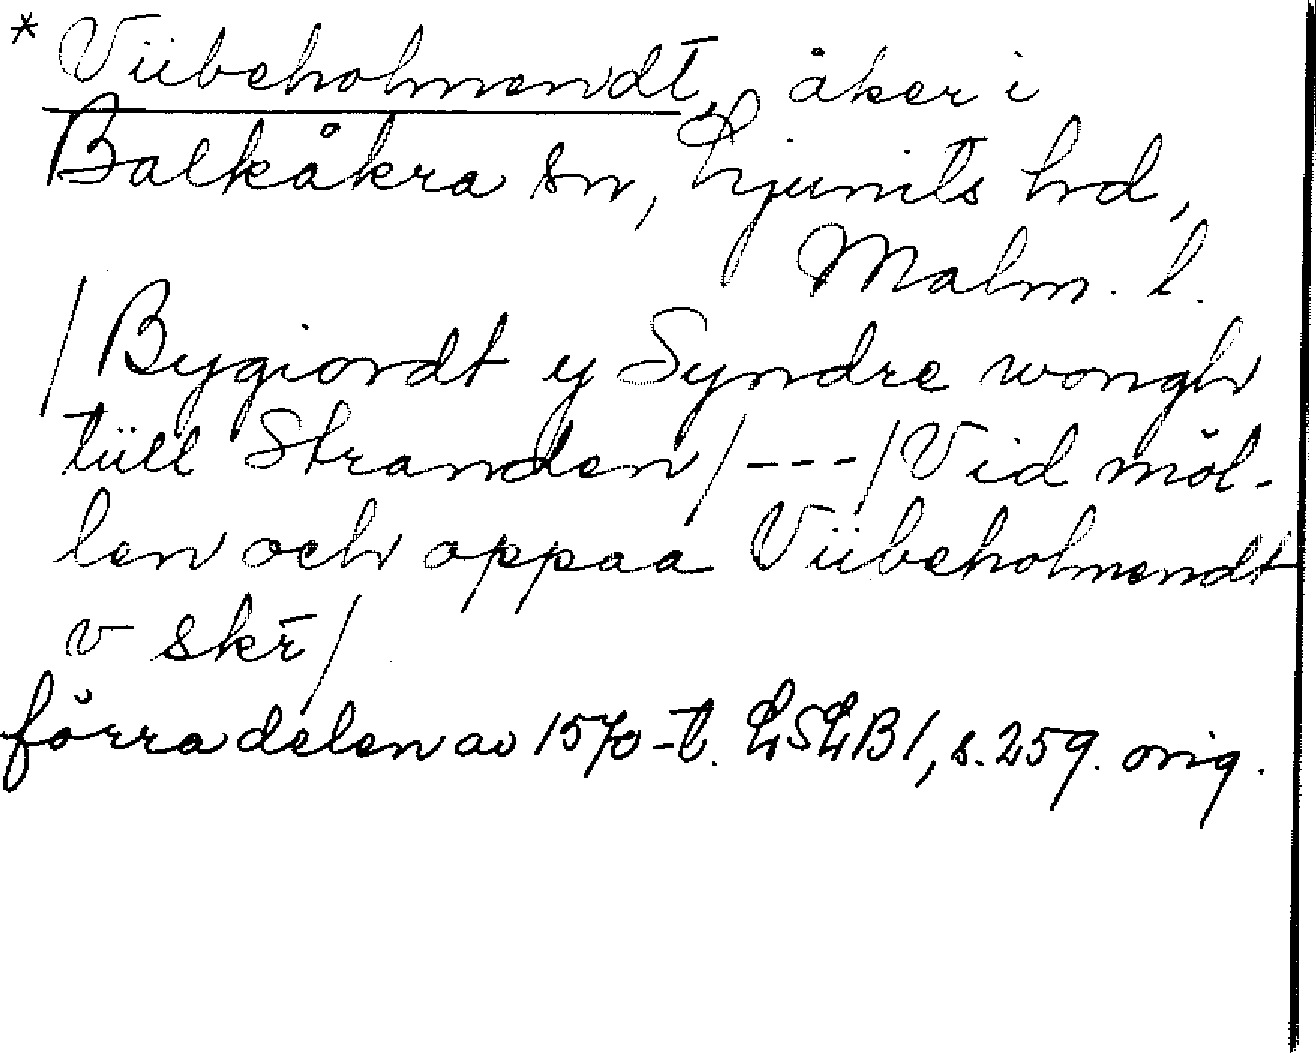 * Viibeholmendt, åker i
Balkåkra sn, Ljunits hd,
Malm. l.
/Bygiordt y Syndre wongh
tüll Stranden/---/Vid möl-
len och oppaa Viibeholmendt
v skr/
förra delen av 1570-t. LSLB1, s. 259. orig.